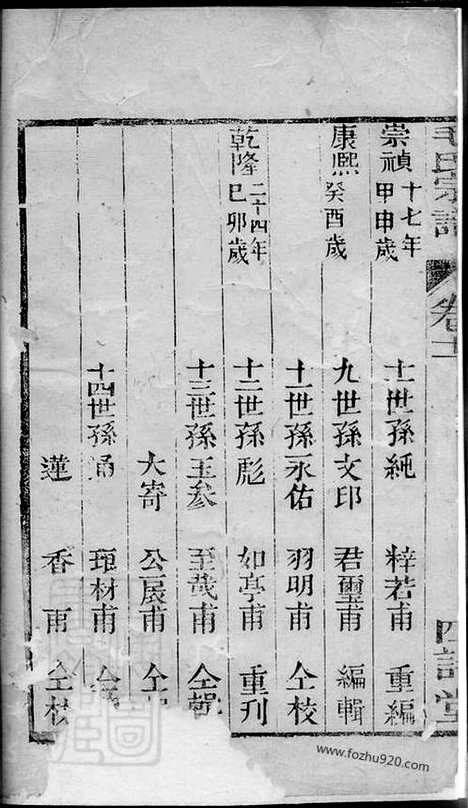 毛氏宗譜 卷十一 四詩堂
崇禎十七年甲申歲 十一世孫純 梓若甫 重編
康熙癸酉歲 九世孫文印 君璽甫 編輯
十一世孫永佑 羽明甫 仝校
乾隆二十四年己卯歲 十二世孫彪 如亭甫 重刊
十三世孫玉參 至哉甫 仝輯
大寄 公辰甫 仝
十四世孫 材甫 仝
蓮 香甫 仝校
www.fozhu920.com